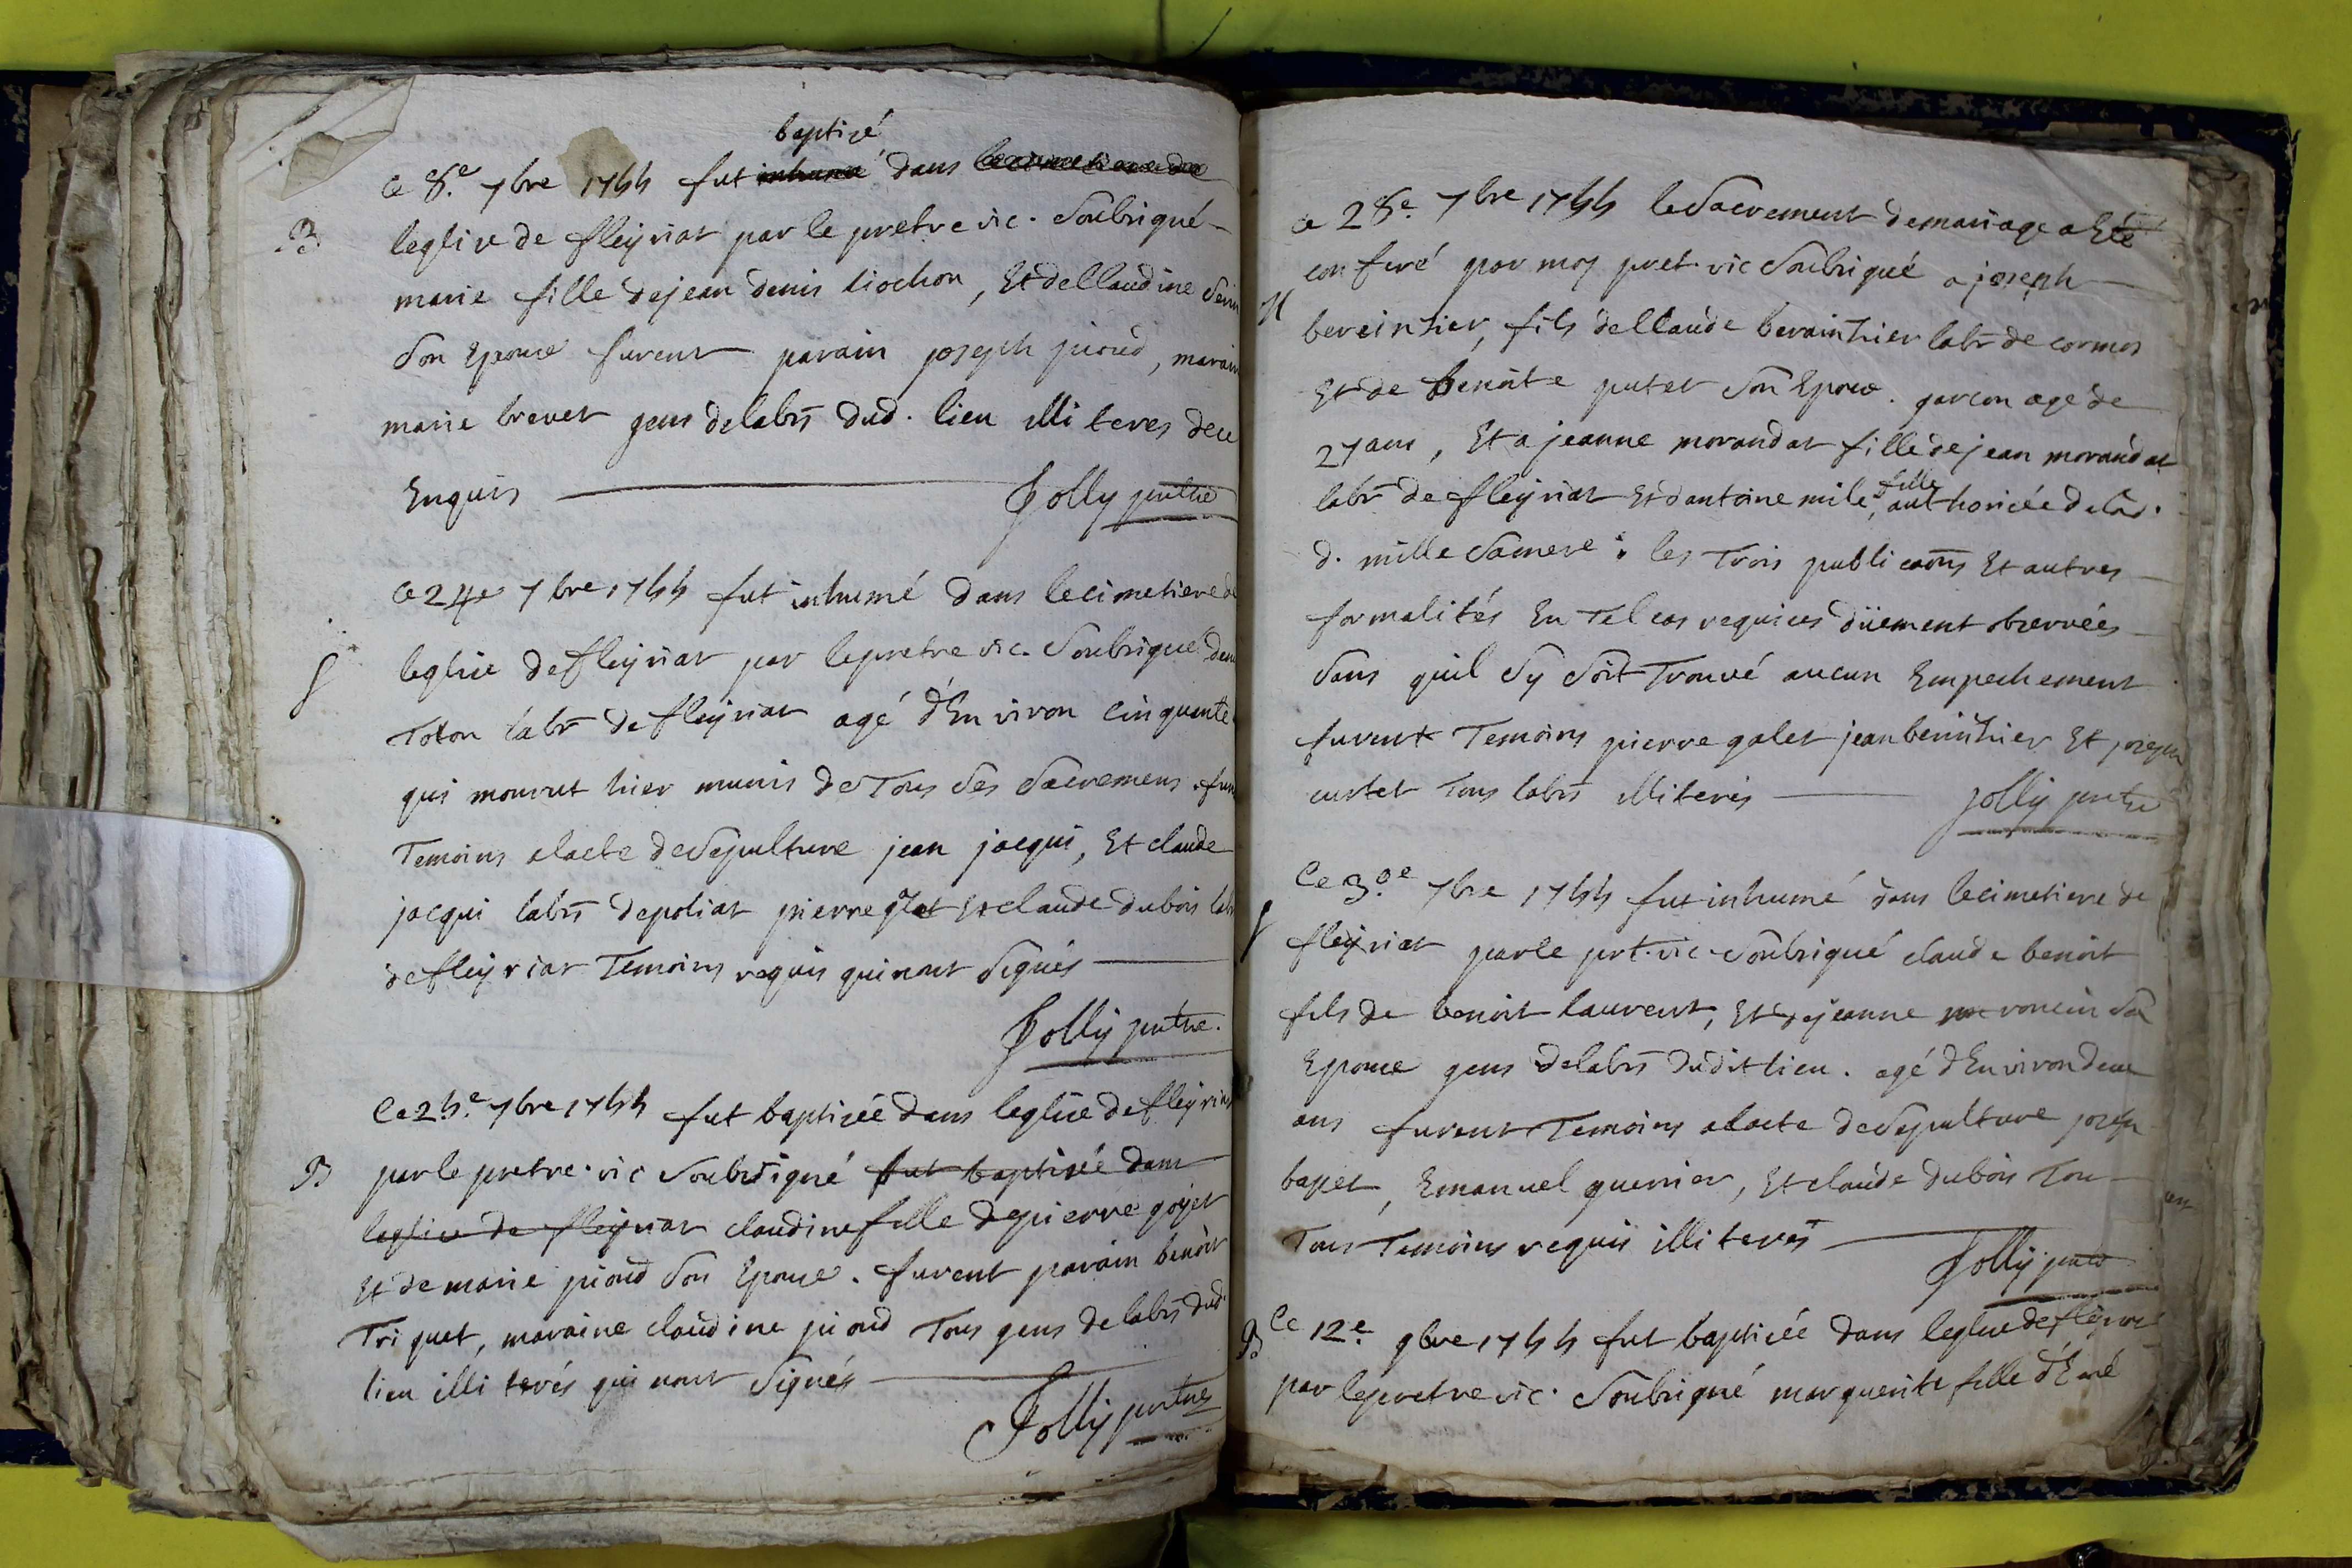 baptizé
ce 8.e 7bre 1744 fut inhumé dans le cimetiere de
B leglise de fleyriat par le pretre vic. soubsigné
marie fille de jean denis liochon, Et de Claudine
son Epouse furent parain joseph pioud, marain
marie brevet gens de labr dud. lieu illiteres de ce
Enquis Jolly prtre
ce 24e 7bre 1744 fut inhumé dans le cimetiere de
S leglise de fleyriat par le pretre vic. soubsigné
Toton labr de fleyriat agé d'Environ cinquente
qui mourut hier munis de Tous ses sacremens. fur
Temoins a lacte de sepulture jean jacqui, Et claude
jacqui labrs de poliat pierre Et claude dubois lab
de fleyriat Temoins requis qui nont signés
Jolly prtre.
Ce 25.e 7bre 1744 fut baptizée dans leglise de fleyriat
B par le pretre vic soubsigné fut baptizée dans
leglise de fleyriat claudine fille de pierre goyet
Et de marie pioud son Epouse. furent parain benoit
Triquet, maraine claudine pioud Tous gens de labrs dud.
lieu illiterés qui nont signés
Jolly prtre
ce 28e. 7bre 1744 le sacrement de mariage a Eté
conferé par moy pret. vic soubsigné a joseph
M bereintier, fils de Claude berainthier labr de cormos
Et de benoite putet son Epouse. garcon agé de
27 ans, Et a jeanne morandat fille de jean morandat
fille
labr de fleyriat Et dantoine mile, authorisée de lad.
d. mille sa mere : les Trois publicaons Et autres
formalités En Tel cas requises düement observées
sans quil sy soit Trouvé aucun Empechement
furent Temoins pierre galet jean berinthier Et joseph
curtet Tous labrs illiterés Jolly prtre
Ce 30.e 7bre 1744 fut inhumé dans le cimetiere de
S fleyriat par le prt. vic. soubsigné claude benoit
fils de benoit laurent, Et de jeanne voncin son
Epouse gens de labrs dudit lieu. agé d'Environ deux
ans furent Temoins a lacte de sepulture joseph
bapet, Emanuel guerrier, Et claude dubois Tou
Tous Temoins requis illiterés
Jolly prtre
B Ce 12e. 9bre 1744 fut baptizée dans leglise de fleyriat
par le pretre vic. soubsigné marguerite fille d'Emé